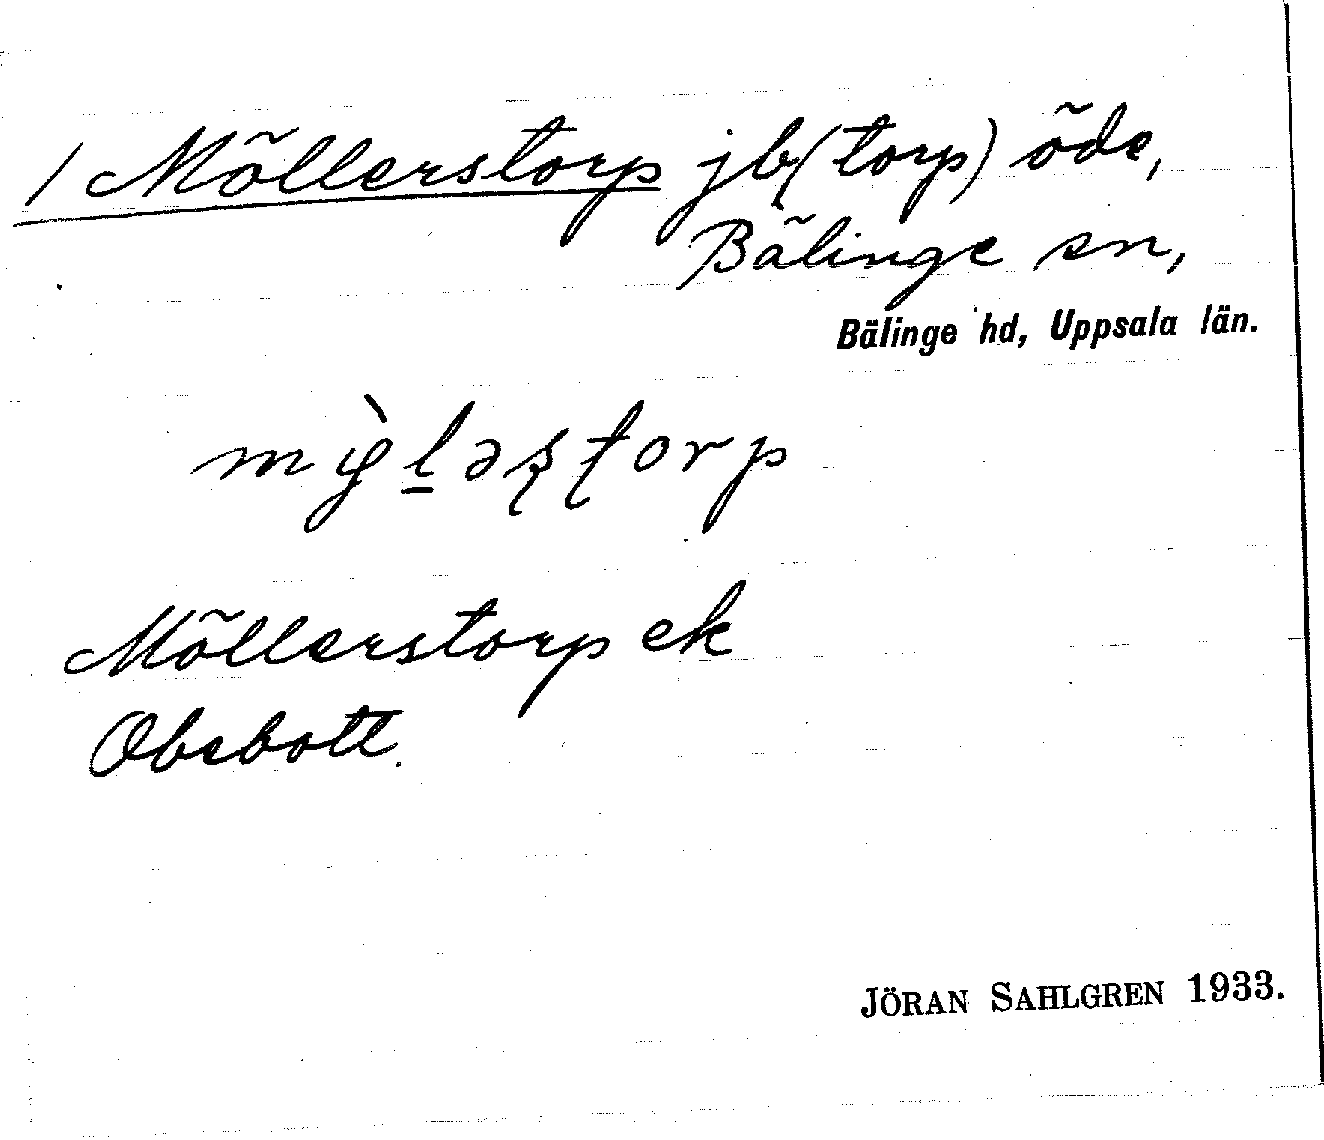 / Möllerstorp jb(torp) öde,
Bälinge sn,
Bälinge hd, Uppsala län.
Möllerstorp ek
Obebott.
JÖRAN SAHLGREN 1933.